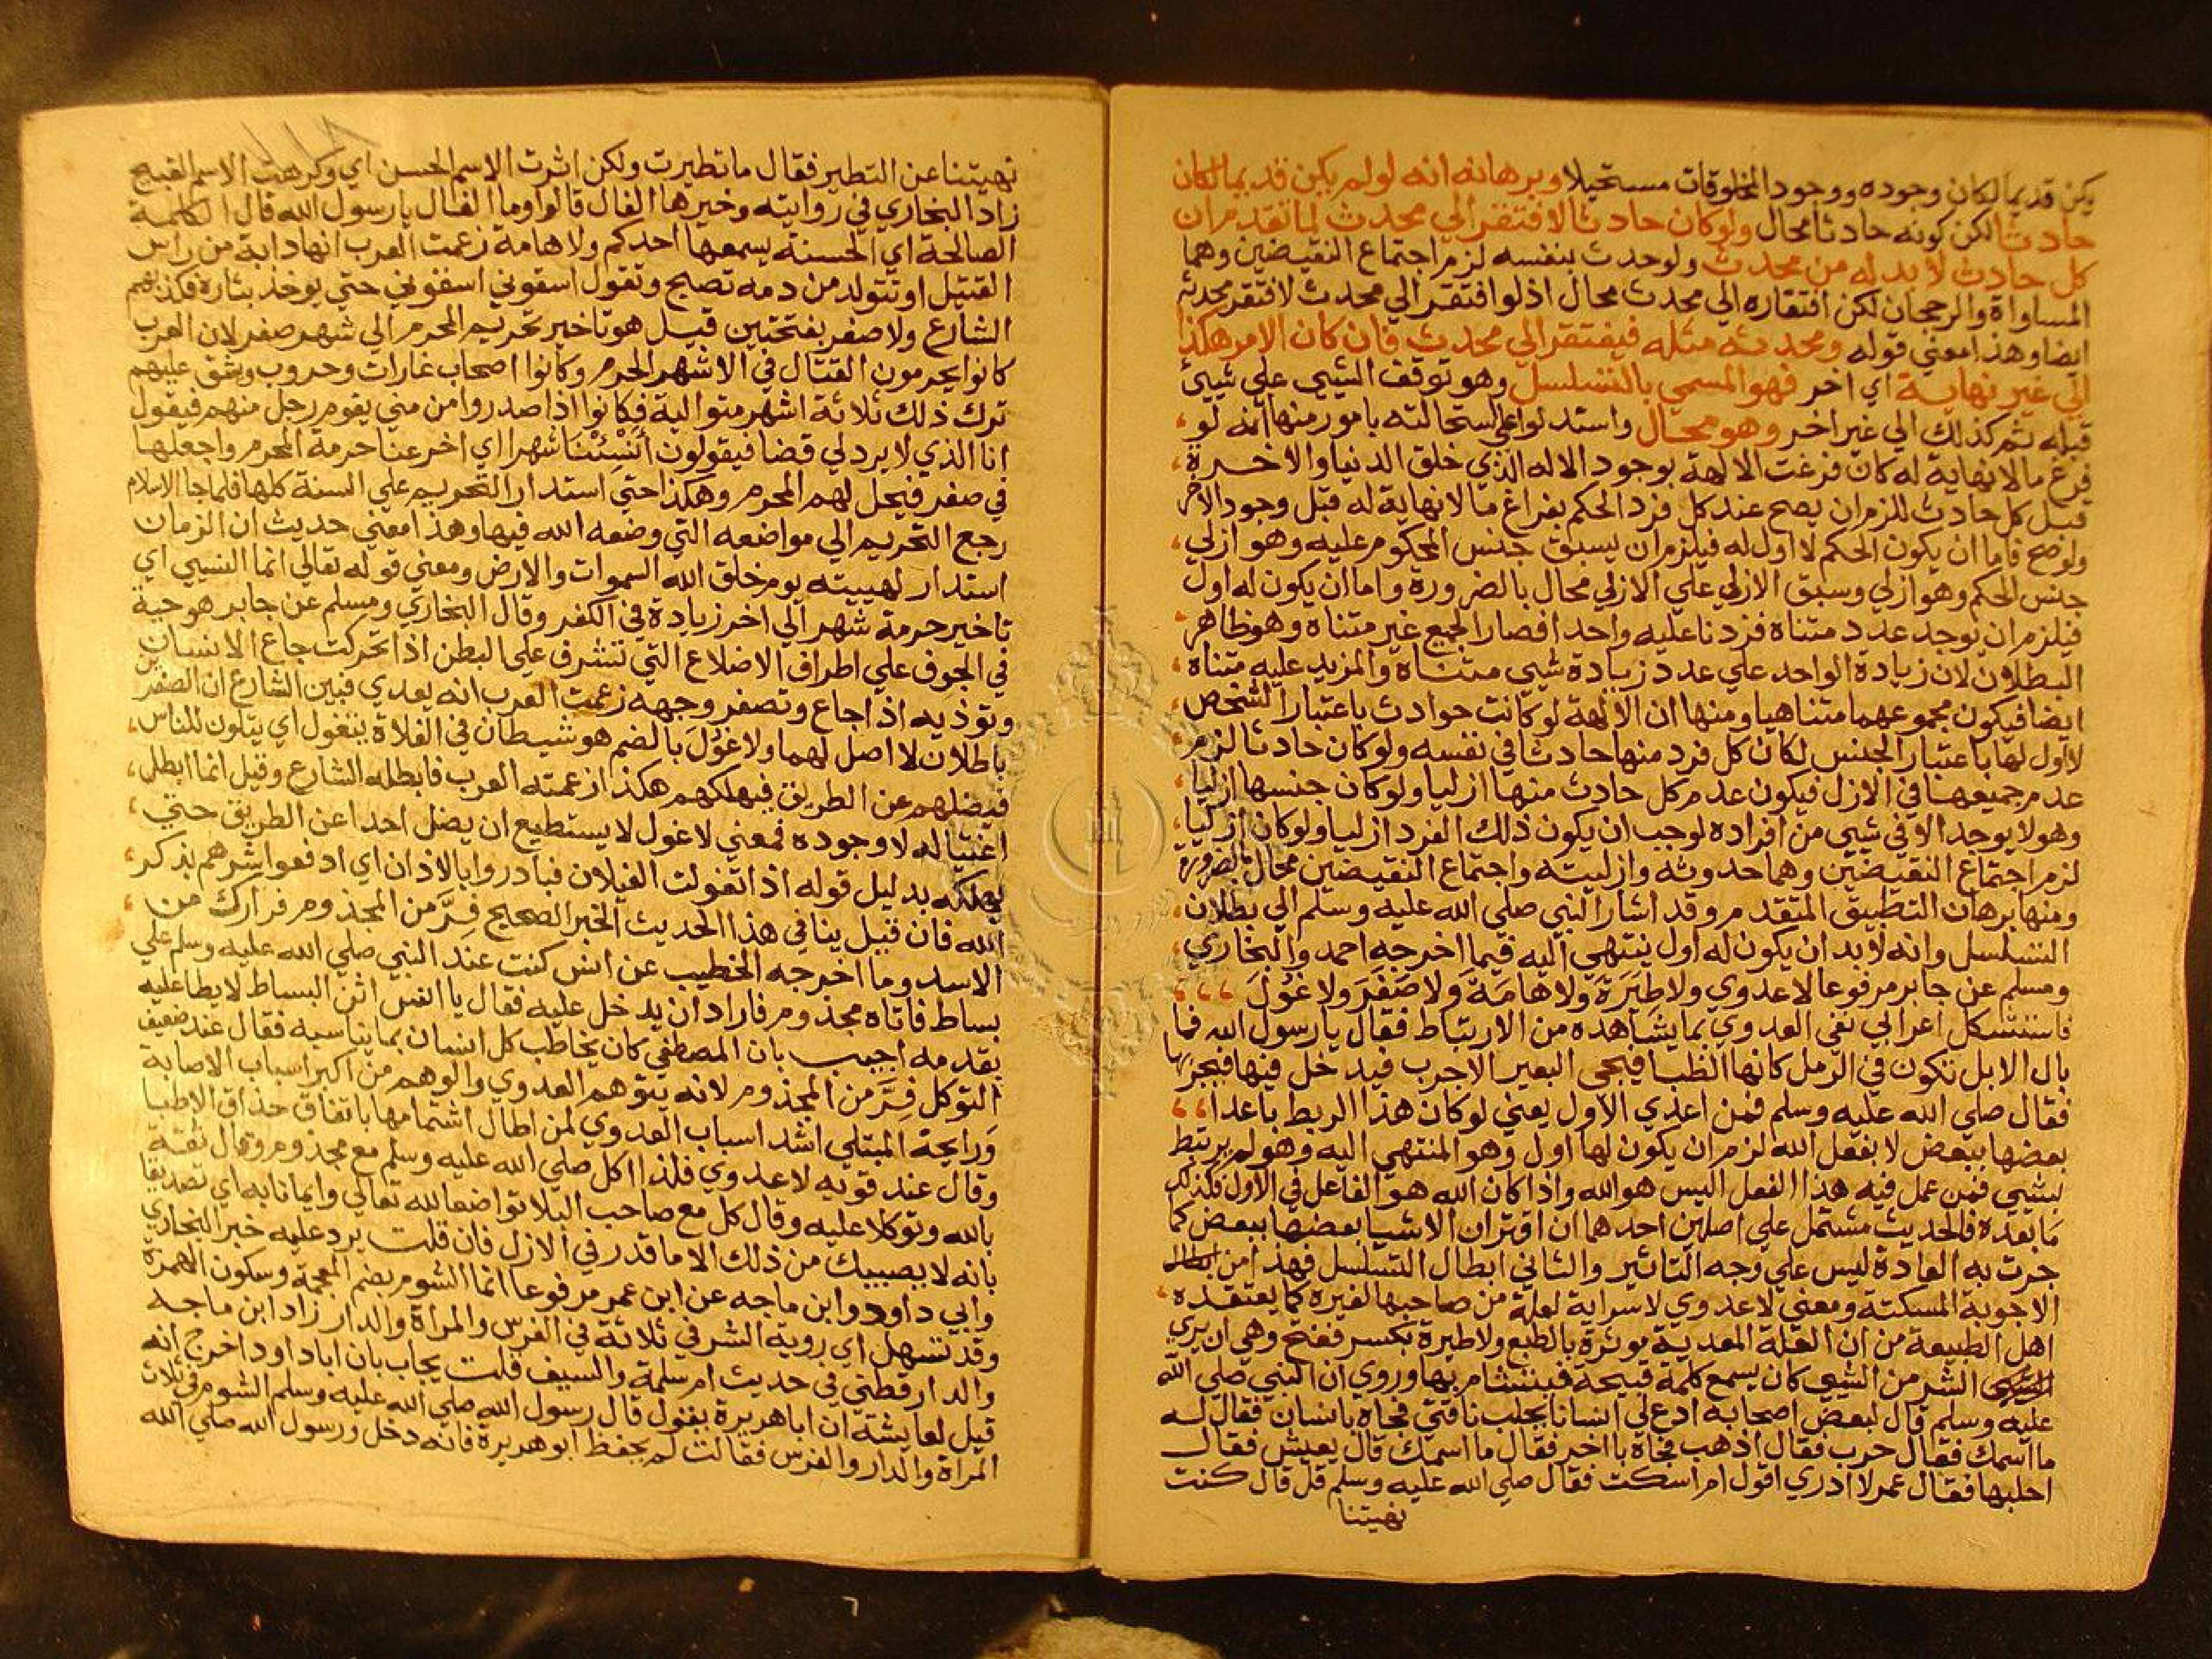 يكن قديما لكان وجوده ووجود المخلوقات مستحيلا وبرهانه انه لو لم يكن قديما لكان
حادثا لكن كونه حادثا محال ولو كان حادثا لافتقر الي محدث لما تقدم من ان
كل حادث لا بد له من محدث ولو حدث بنفسه لزم اجتماع النقيضين وهما
المساواة والرجحان لكن افتقاره الي محدث محال اذ لو افتقر الي محدث لافتقر محدثه
ايضا وهذا معني قوله ومحدثه مثله فيفتقر الي محدث فان كان الامر هكذا
الي غير نهاية اي اخر فهو المسمي بالتسلسل وهو توقف الشيي علي شيئ
قبله ثم كذلك الي غير اخر وهو محال واستدلوا علي استحالته بامور منها انه لو
فرغ ما لا نهاية له كان فرغت الالهة بوجود الاله الذي خلق الدنيا والاخرة
قبل كل حادث للزم ان يصح عند كل فرد الحكم بفراغ ما لا نهاية له قبل وجود الاخر
ولو صح فاما ان يكون الحكم لا اول له فيلزم ان يسبق جنس المحكوم عليه وهو ازلي
جنس الحكم وهو ازلي وسبق الازلي علي الازلي محال بالضرورة واما ان يكون له اول
فيلزم ان يوجد عدد متناه فزدنا عليه واحدا فصار الجميع غير متناه وهو ظاهر
البطلان لان زيادة الواحد علي عدد زيادة شيي متناه والمزيد عليه متناه
ايضا فيكون مجموعهما متناهيا ومنها ان الالهة لو كانت حوادث باعتبار الشخص
لا اول لها باعتبار الجنس لكان كل فرد منها حادثا في نفسه ولو كان حادثا لزم
عدم جميعها في الازل فيكون عدم كل حادث منها ازليا ولو كان جنسها ازليا
وهو لا يوجد الا في شيي من افراده لوجب ان يكون ذلك الفرد ازليا ولو كان ازليا
لزم اجتماع النقيضين وهما حدوثه وازليته واجتماع النقيضين محال بالضرورة
ومنها برهان التطبيق المتقدم وقد اشار النبي صلي الله عليه وسلم الي بطلان
التسلسل وانه لا بد ان يكون له اول ينتهي اليه فيما اخرجه احمد والبخاري
ومسلم عن جابر مرفوعا لا عدوي ولا طِيَرَةَ ولا هامَةَ ولا صَفَرَ ولا غُوْلَ
فاستشكل اعرابي نفي العدوي بما يشاهده من الارتباط فقال يا رسول الله فما
بال الابل تكون في الرمل كانها الظبا فيجي البعير الاجرب فيدخل فيها فيجربها
فقال صلي الله عليه وسلم فمن اعدي الاول يعني لو كان هذا الربط باعدا
بعضها ببعض لا بفعل الله لزم ان يكون لها اول وهو المنتهي اليه وهو لم يرتبط
بشيي فمن عمل فيه هذا الفعل اليس هو الله واذا كان الله هو الفاعل في الاول فكذلك
ما بعده فالحديث مشتمل علي اصلين احدهما ان اقتران الاشيا بعضها ببعض كما
جرت به العادة ليس علي وجه التاثير والثاني ابطال التسلسل فهذا من
الاجوبة المسكتة ومعني لا عدوي لا سراية لعلة من صاحبها لغيره كما يعتقده
اهل الطبيعة من ان العلة المعدية موثرة بالطبع ولا طيرة بكسر ففتح وهي ان يري
الشر من الشيي كان يسمع كلمة قبيحة فيتشام بها وروي ان النبي صلي الله
عليه وسلم قال لبعض اصحابه ادع لي انسانا يحلب ناقتي فجاه بانسان فقال له
ما اسمك فقال حرب فقال اذهب فجاه باخر فقال ما اسمك قال يعيش فقال
احلبها فقال عمر لا ادري اقول ام اسكت فقال صلي الله عليه وسلم قل قال كنت
نهيتنا
نهيتنا عن التطير فقال ما تطيرت ولكن اثرت الاسم الحسن اي وكرهت الاسم القبيح
زاد البخاري في روايته وخيرها الفال قالوا وما الفال يا رسول الله قال الكلمة
الصالحة اي الحسنة يسمعها احدكم ولا هامة زعمت العرب انها دابة من راس
القتيل او تتولد من دمه تصيح وتقول اسقوني اسقوني حتي يوخذ بثاره فكذبهم
الشارع ولا صفر بفتحتين قيل هو تاخير تحريم المحرم الي شهر صفر لان العرب
كانوا يحرمون القتال في الاشهر الحرم وكانوا اصحاب غارات وحروب ويشق عليهم
ترك ذلك ثلاثة اشهر متوالية فكانوا اذا صدروا من مني يقوم رجل منهم فيقول
انا الذي لا يرد لي قضا فيقولون أَنْسِئْنَا شهرا اي اخر عنا حرمة المحرم واجعلها
في صفر فيحل لهم المحرم وهكذا حتي استدار التحريم علي السنة كلها فلما جا الاسلام
رجع التحريم الي مواضعه التي وضعه الله فيها وهذا معني حديث ان الزمان
استدار لهييته يوم خلق الله السموات والارض ومعني قوله تعالي انما النسيي اي
تاخير حرمة شهر الي اخر زيادة في الكفر وقال البخاري ومسلم عن جابر هو حية
في الجوف علي اطراف الاضلاع التي تشرف علي البطن اذا تحركت جاع الانسان
وتوذيه اذا جاع وتصفر وجهه زعمت العرب انه يعدي فبين الشارع ان الصفرين
باطلان لا اصل لهما ولا غُوْلَ بالضم هو شيطان في الفلاة يتغول اي يتلون للناس
فيضلهم عن الطريق فيهلكهم هكذا زعمته العرب فابطله الشارع وقيل انما ابطل
اغتياله لا وجوده فمعني لا غول لا يستطيع ان يضل احدا عن الطريق حتي
يهلكه بدليل قوله اذا تغولت الغيلان فبادروا بالاذان اي ادفعوا شرهم بذكر
الله فان قيل ينافي هذا الحديث الخبر الصحيح فِرَّ من المجذوم فرارك من
الاسد وما اخرجه الخطيب عن انس كنت عند النبي صلي الله عليه وسلم علي
بساط فاتاه مجذوم فاراد ان يدخل عليه فقال يا انس اثن البساط لا يطا عليه
بقدمه اجيب بان المصطفي كان يخاطب كل انسان بما يناسبه فقال عند ضعيف
التوكل فِرَّ من المجذوم لانه يتوهم العدوي والوهم من اكبر اسباب الاصابة
ورايحة المبتلي اشد اسباب العدوي لمن اطال اشتمامها باتفاق حذاق الاطبا
وقال عند قويه لا عدوي فلذا اكل صلي الله عليه وسلم مع مجذوم وقال ثقة
بالله وتوكلا عليه وقال كل مع صاحب البلا تواضعا لله تعالي وايمانا به اي تصديقا
بانه لا يصيبك من ذلك الا ما قدر في الازل فان قلت يرد عليه خبر البخاري
وابي داود وابن ماجه عن ابن عمر مرفوعا انما الشوم بضم المعجمة وسكون الهمزة
وقد تسهل اي روية الشر في ثلاثة في الفرس والمراة والدار زاد ابن ماجه
والدارقطني في حديث ام سلمة والسيف قلت يجاب بان ابا داود اخرج انه
قيل لعايشة ان ابا هريرة يقول قال رسول الله صلي الله عليه وسلم الشوم في ثلاث
المراة والدار والفرس فقالت لم يحفظ ابو هريرة فانه دخل ورسول الله صلي الله